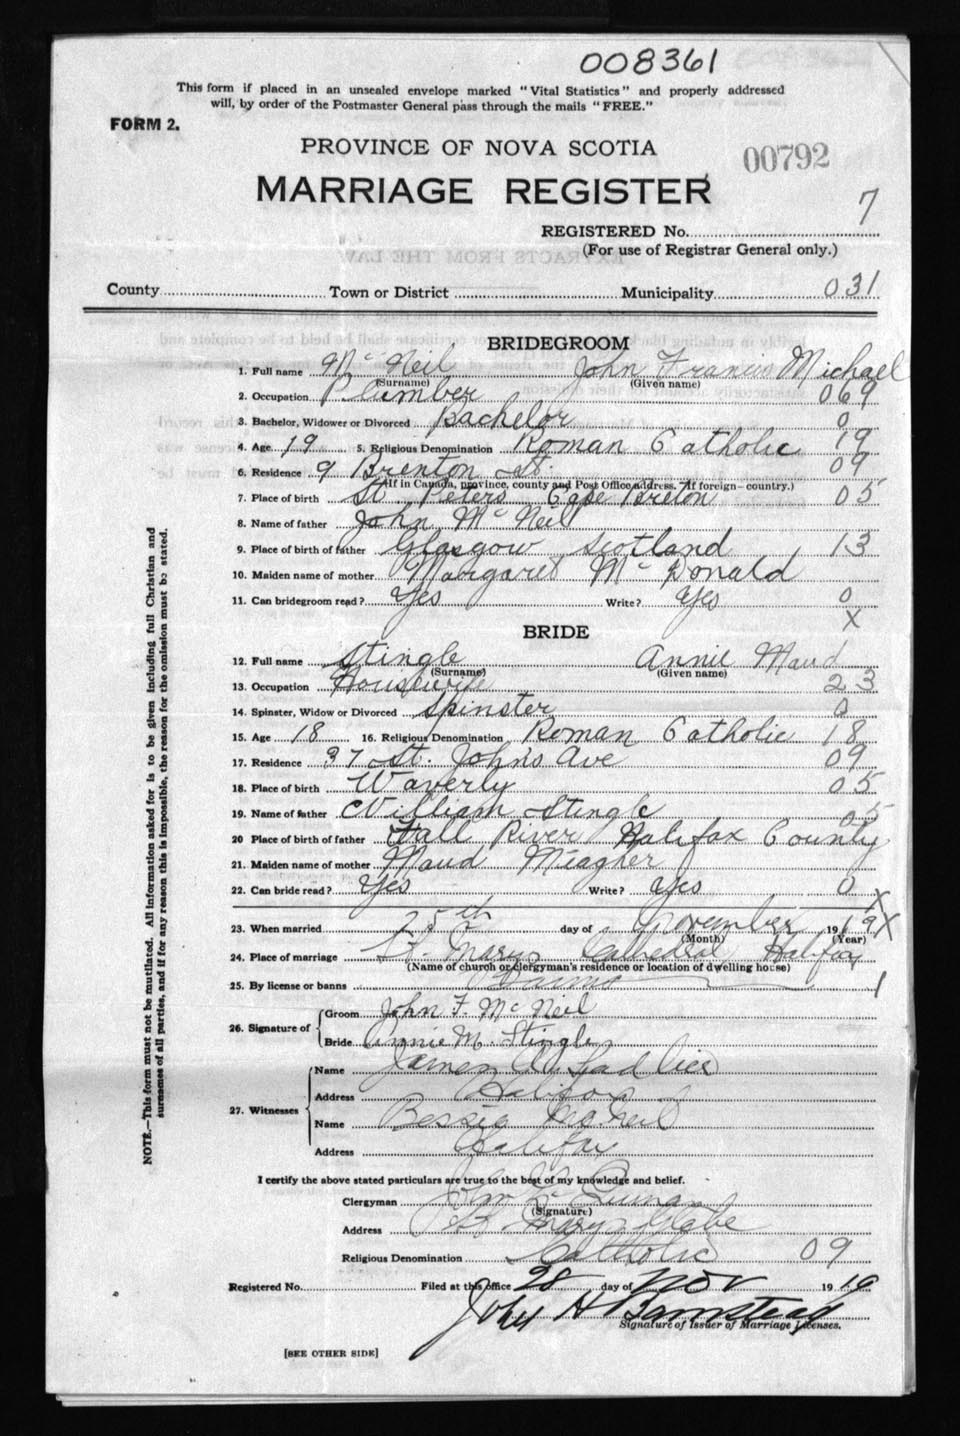 008361
This form if placed in an unsealed envelope marked "Vital Statistics" and properly addressed
will, by order of the Postmaster General pass through the mails "FREE."
FORM 2.
PROVINCE OF NOVA SCOTIA
00792
MARRIAGE REGISTER
7
REGISTERED No.
(For use of Registrar General only.)
County Town or District Municipality 031
BRIDEGROOM
1. Full name Mc Neil John Francis Michael
(Surname) (Given name)
2. Occupation Plumber 069
3. Bachelor, Widower or Divorced Bachelor 0
4. Age 19 5. Religious Denomination Roman Catholic 19
6. Residence 9 Brenton St. 09
(If in Canada, province, county and Post Office address. If foreign—country.)
7. Place of birth St. Peters Cape Breton 05
8. Name of father John McNeil
9. Place of birth of father Glasgow Scotland 13
10. Maiden name of mother Margaret Mc Donald
11. Can bridegroom read? Yes Write? Yes 0
X
BRIDE
12. Full name Stingle Annie Maud
(Surname) (Given name)
13. Occupation Housewife 23
14. Spinster, Widow or Divorced Spinster 0
15. Age 18 16. Religious Denomination Roman Catholic 18
17. Residence 37 St. John's Ave 09
18. Place of birth Waverly 05
19. Name of father William Stingle 05
20 Place of birth of father Fall River Halifax County
21. Maiden name of mother Maud Meagher
22. Can bride read? Yes Write? Yes 0
X
23. When married 25th day of November 1919 X
(Month) (Year)
24. Place of marriage St. Mary's Cathedral Halifax
(Name of church or clergyman's residence or location of dwelling house)
25. By license or banns Banns 1
26. Signature of Groom John F. McNeil
Bride Annie M. Stingle
27. Witnesses Name James Sadlier
Address Halifax
Name Bessie McNeil
Address Halifax
I certify the above stated particulars are true to the best of my knowledge and belief.
Clergyman John Quinan
(Signature)
Address St. Marys Glebe
Religious Denomination Catholic 09
Registered No. Filed at this office 28 day of Nov 1919
John H Barnstead
Signature of Issuer of Marriage Licenses.
[SEE OTHER SIDE]
NOTE.—This form must not be mutilated. All information asked for is to be given including full Christian and
surnames of all parties, and if for any reason this is impossible, the reason for the omission must be stated.